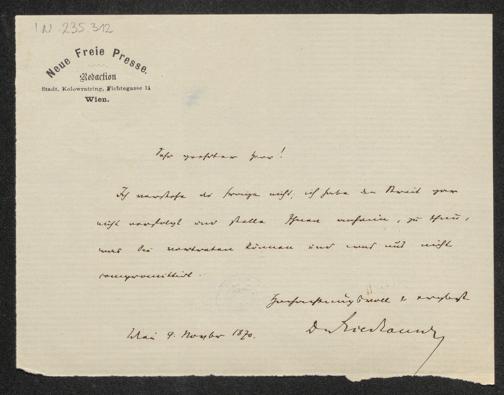 IN 235.312
Neue Freie Presse.
Redaction
Stadt, Kolowratring, Fichtegasse 11
Wien.
Sehr geehrter Herr!
Ich verstehe die Frage nicht, ich habe den Streit gar
nicht verfolgt und stelle Ihnen anheim, zu thun,
was Sie vertreten können und was uns nicht
compromittirt.
Hochachtungsvoll u. ergebenst
Wien 9. Novbr 1870.